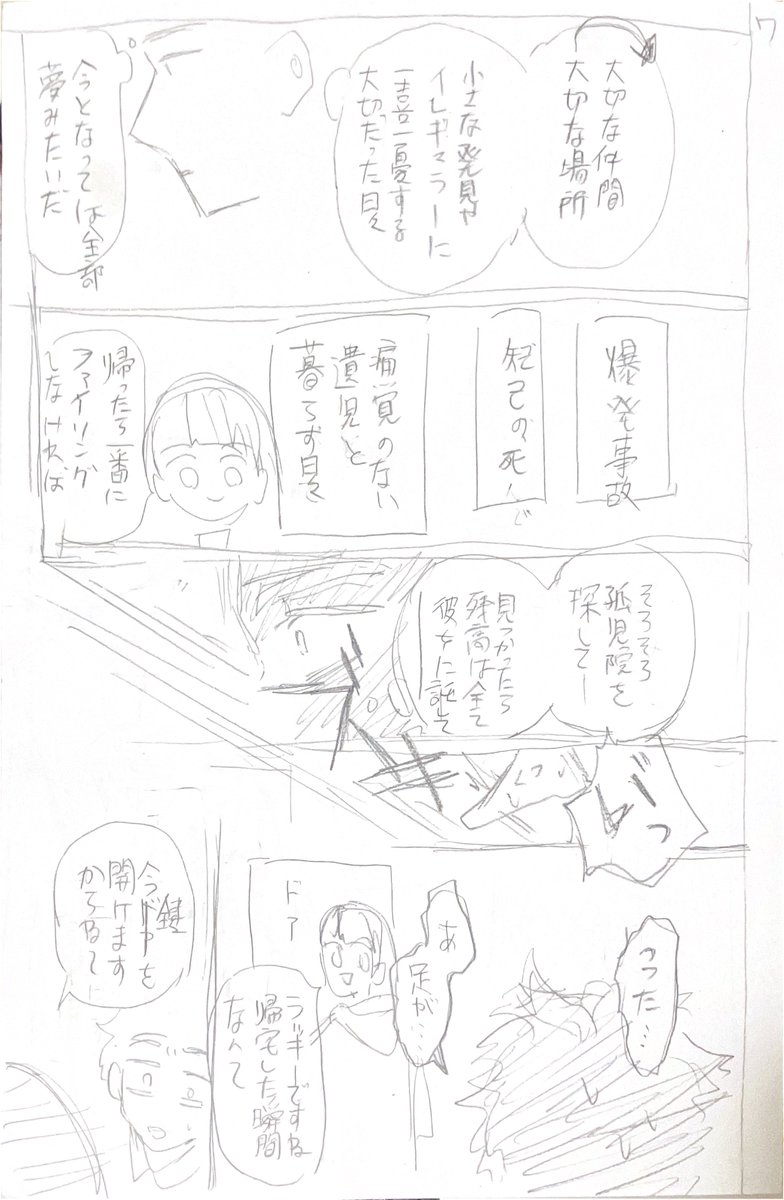 7
大切な仲間
大切な場所
小さな発見や
イレギュラーに
一喜一憂する
大切だった日々
今となっては全部
夢みたいだ
爆発事故
知己の死
痛覚のない
遺児と
暮らす日々
帰ったら一番に
ファイリング
しなければ
そろそろ
孤児院を
探して―
見つかったら
残高は全て
彼女に託して
つった…
あ
足が…
ドア
ラッキーですね
帰宅した瞬間
なんて
今鍵を
開けます
からねて